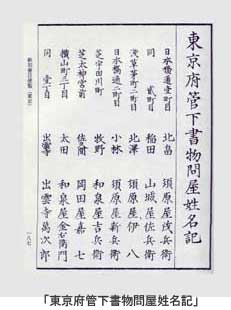 東京府管下書物問屋姓名記
日本橋通壹町目 北畠 須原屋茂兵衛
同 貳町目 稲田 山城屋佐兵衛
浅草茅町二町目 北澤 須原屋伊八
日本橋通二町目 小林 須原屋新兵衛
芝宇田川町 牧野 和泉屋吉兵衛
芝太神宮前 佐久間 岡田屋嘉七
横山町三丁目 太田 和泉屋金右衛門
同 壹丁目 出雲寺 出雲寺萬次郎
一八七
「東京府管下書物問屋姓名記」